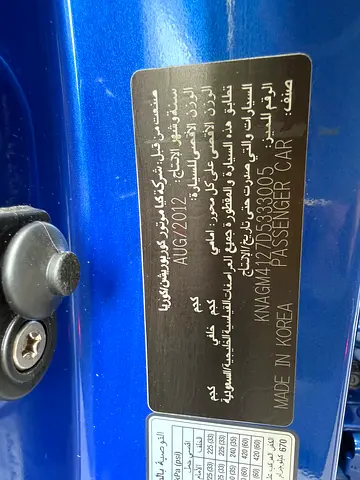 صنعت من قبل: شركة كيا موتورز كوربوريشن/كوريا
سنة وشهر الانتاج: AUG/2012
الوزن الاقصى للسيارة: كجم
الوزن الاقصى على كل محور: امامي كجم خلفي كجم
تطابق هذه السيارة والمقطورة جميع المواصفات القياسية الخليجية/السعودية
السيارات والتي صدرت حتى تاريخ الانتاج
الرقم المميز: KNAGM4127D5333005
صنف: PASSENGER CAR
MADE IN KOREA
670 كيلوجرام
420 (60)
240 (35)
225 (33)
kPa (psi)